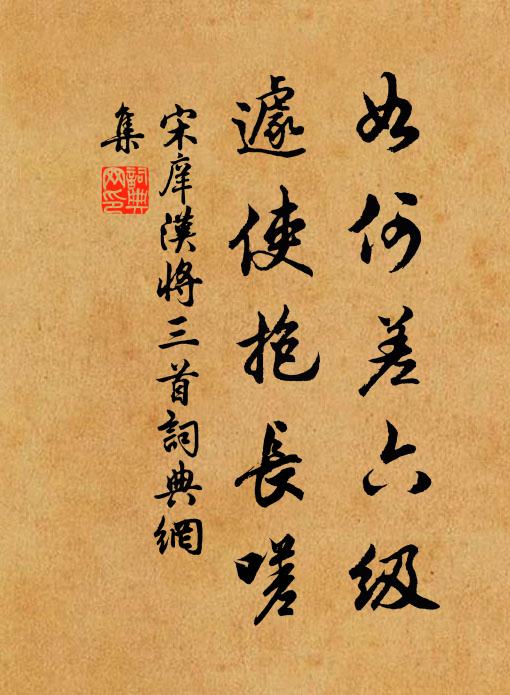 如何差六級
遽使抱長嗟
宋庠漢將三首詞典網
集
詞典網印